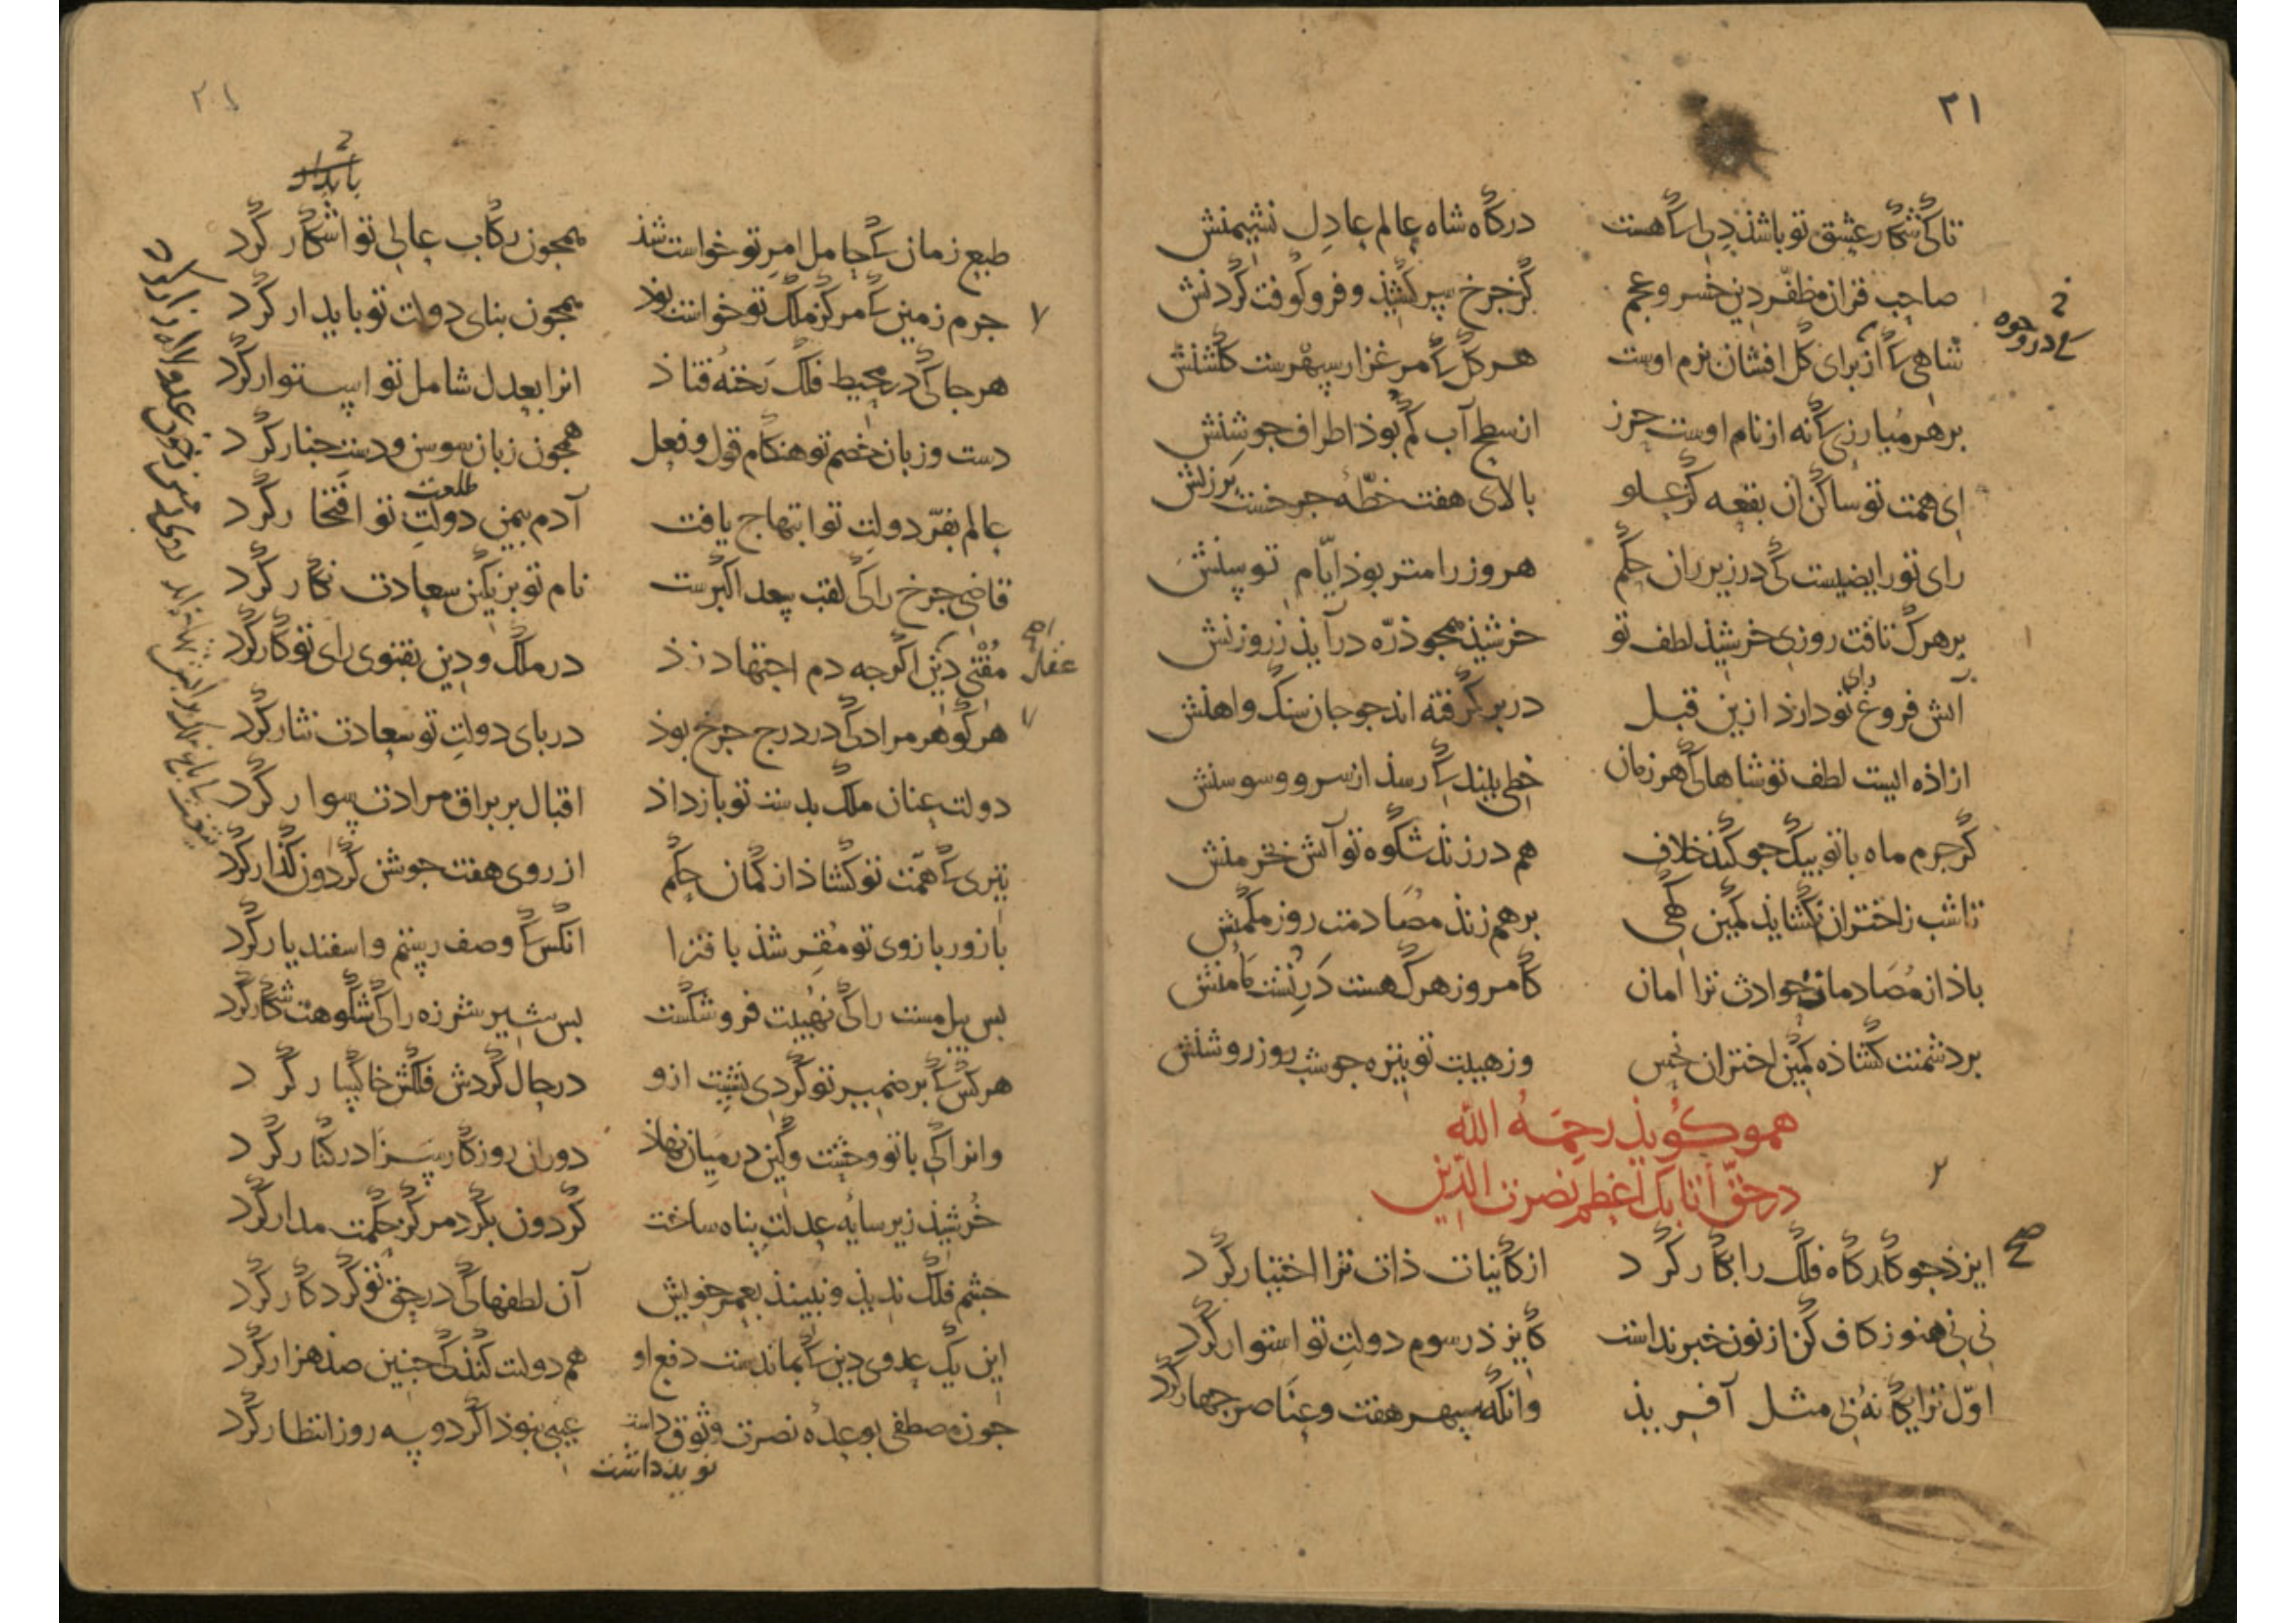 ۲۱
تا کی شکار عشق تو باشذ دلی که هست درکاه شاه عالم عادل نشیمنش
صاحب قران مظفر دین خسرو عجم کز جرخ سر کشیذ و فرو کوفت کردنش
شاهی که از برای کل افشان بزم اوست هر کل که مرغزار سپهرست کلشنش
بر هر مبارزی که نه از نام اوست حرز از سطح آب کم بوذ اطراف جوشنش
ای همت تو ساکن ان بقعه کز علو بالای هفت خطهٔ جرخست برزنش
رای تو رایضیست کی در زیر ران حکم هر وز رامتر بوذ ایام توسنش
بر هرک تافت روزی خرشیذ لطف تو خرشیذ همجو ذره درآیذ ز روزنش
آتش فروغ رای تو دارذ ازین قبل در بر کرفته اند جو جان سنک و اهنش
ازاذه ایست لطف تو شاها کی هر زمان خطی بیند که رسذ از سرو و سوسنش
کر جرم ماه با تو بیک جو کند خلاف هم در زند شکوه تو آتش بخرمنش
تا شب ز اختران نکشاید کمین کهی بر هم زند مصادمت روز مکمنش
باذ از مصادمات حوادث ترا امان کامروز هرک هست درتست مامنش
بر دشمنت کشاذه کمین اختران نحس وز هیبت تو تیره جو شب روز روشنش
همو کویذ رحمه الله
در حق اتابک اعظم نصرت الدین
ایزذ جو کارکاه فلک را بکار کرد از کاینات ذات ترا اختیار کرد
نی نی هنوز کاف کن از نون خبر نداشت کایزذ رسوم دولت تو استوار کرد
اول ترا یکانه بی مثل آفریذ وانکه سپهر هفت و عناصر جهار کرد
۲۱
بایدار
طبع زمان که حامل امر تو خواست شذ همجون رکاب عالی تو اشکار کرد
جرم زمین که مرکز ملک تو خواست بوذ همجون بنای دولت تو بایدار کرد
هر جا کی در محیط فلک رخنه فتاذ انرا بعدل شامل تو استوار کرد
دست و زبان خصم تو هنکام قول و فعل همجون زبان سوسن و دست جنار کرد
عالم بفر دولت تو ابتهاج یافت آدم بیمن دولت تو افتخار کرد
طلعت
قاضی جرخ را کی لقب سعد اکبرست نام تو بر نکین سعادت نکار کرد
مفتی دین اکرجه دم اجتهاد زذ در ملک و دین بفتوی رای تو کار کرد
هر کوهر مراد کی در درج جرخ بوذ در بای دولت تو سعادت نثار کرد
دولت عنان ملک بدست تو بازداذ اقبال بر براق مرادت سوار کرد
تیری که همت تو کشاذ از کمان حکم از روی هفت جوشن کردون کذار کرد
با زور بازوی تو مقر شذ بافترا انکس که وصف رستم و اسفندیار کرد
بس بیل مست را کی نهیبت فرو شکست بس شیر شرزه را کی شکوهت شکار کرد
هر کس که بر ضمیر تو کردی نشست ازو در حال کردش فلکش خاکسار کرد
وانرا کی با تو وحشت و کین در میان نهاذ دوران روزکار سزا در کنار کرد
خرشیذ زیر سایه عدلت پناه ساخت کردون بکرد مرکز حکمت مدار کرد
جشم فلک ندیذ و نبینذ بعمر خویش آن لطفها کی در حق تو کردکار کرد
این یک عدوی دین که بماندست دفع او هم دولت کند کی جنین صذ هزار کرد
جون مصطفی بوعده نصرت وثوق داشت عیبی نبوذ اکر دو سه روز انتظار کرد
نوید داشت